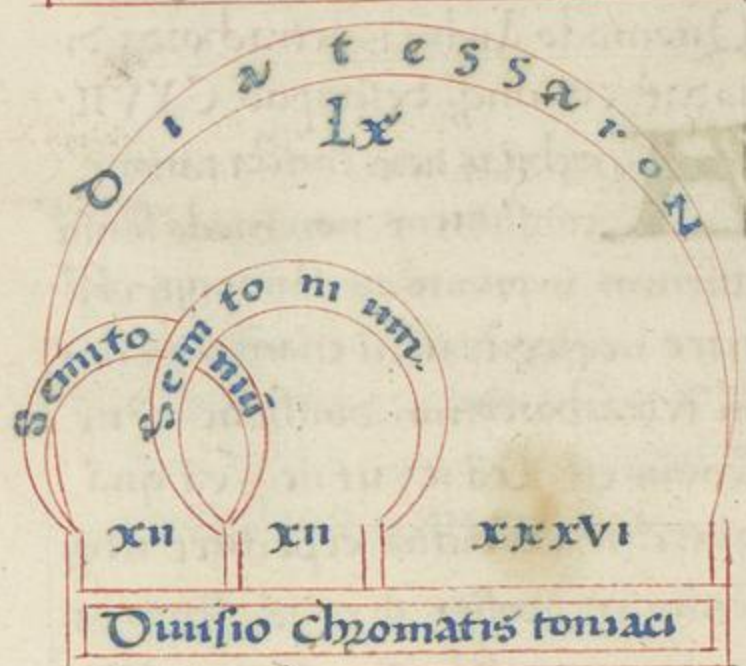 Diatessaron
Lx
Semitoniū
Semitonium.
xii
xii
xxxvi
Diuisio chromatis toniaci